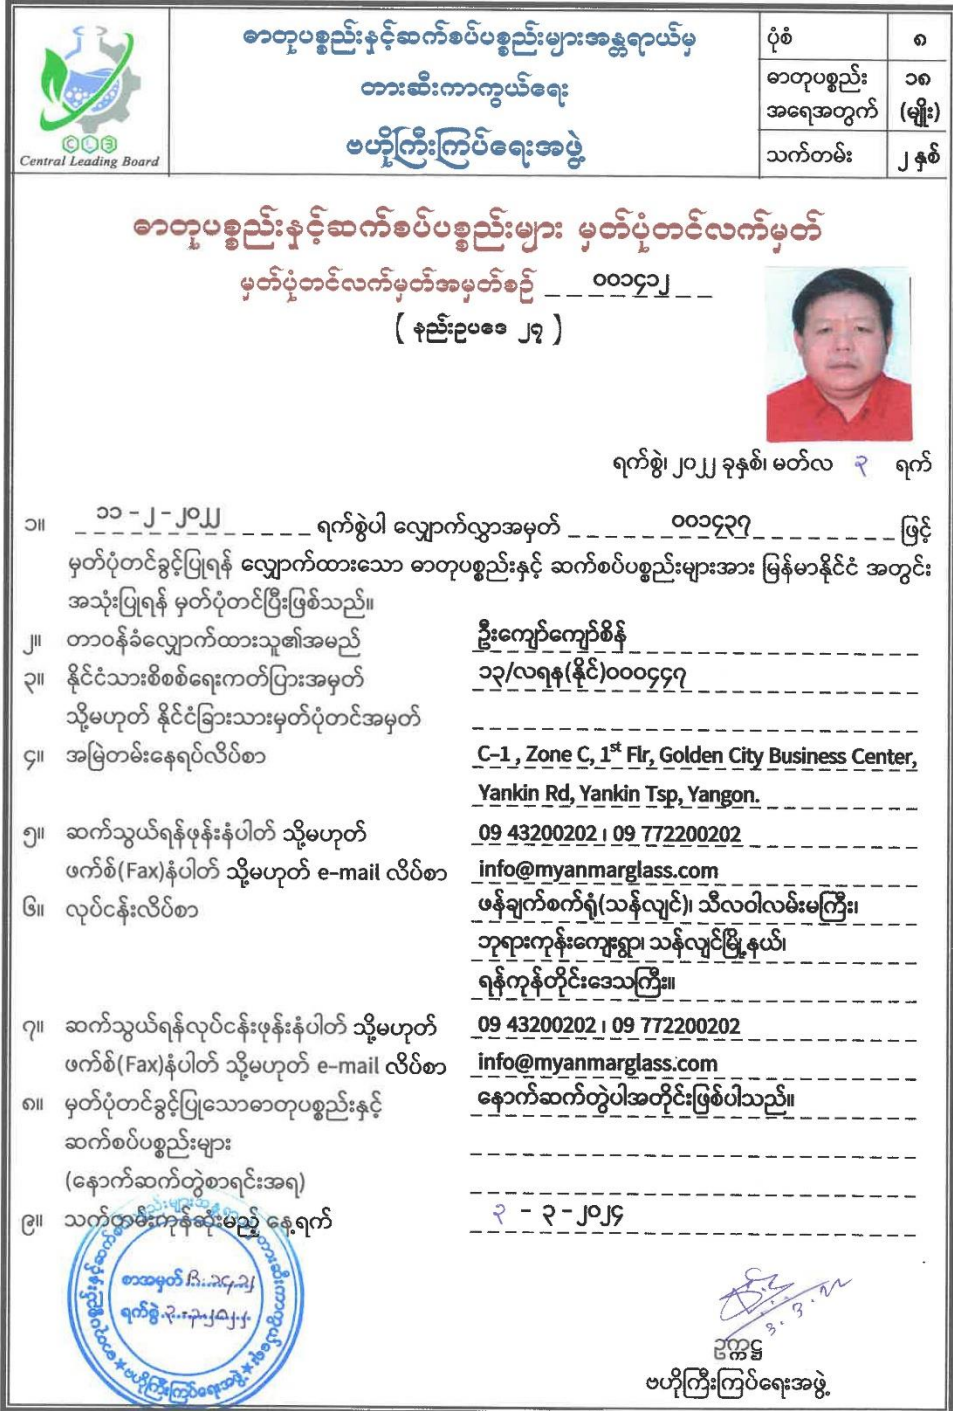 CLB
Central Leading Board
ဓာတုပစ္စည်းနှင့်ဆက်စပ်ပစ္စည်းများအန္တရာယ်မှ
တားဆီးကာကွယ်ရေး
ဗဟိုကြီးကြပ်ရေးအဖွဲ့
ပုံစံ ၈
ဓာတုပစ္စည်း အရေအတွက် ၁၈ (မျိုး)
သက်တမ်း ၂ နှစ်
ဓာတုပစ္စည်းနှင့်ဆက်စပ်ပစ္စည်းများ မှတ်ပုံတင်လက်မှတ်
မှတ်ပုံတင်လက်မှတ်အမှတ်စဉ် ၀၀၁၄၁၂
( နည်းဥပဒေ ၂၇ )
ရက်စွဲ၊ ၂၀၂၂ ခုနှစ်၊ မတ်လ ၃ ရက်
၁။ ၁၁ - ၂ - ၂၀၂၂ ရက်စွဲပါ လျှောက်လွှာအမှတ် ၀၀၁၄၃၇ ဖြင့်
မှတ်ပုံတင်ခွင့်ပြုရန် လျှောက်ထားသော ဓာတုပစ္စည်းနှင့် ဆက်စပ်ပစ္စည်းများအား မြန်မာနိုင်ငံ အတွင်း
အသုံးပြုရန် မှတ်ပုံတင်ပြီးဖြစ်သည်။
၂။ တာဝန်ခံလျှောက်ထားသူ၏အမည် ဦးကျော်ကျော်စိန်
၃။ နိုင်ငံသားစိစစ်ရေးကတ်ပြားအမှတ် ၁၃/လရန(နိုင်)၀၀၀၄၄၇
သို့မဟုတ် နိုင်ငံခြားသားမှတ်ပုံတင်အမှတ်
၄။ အမြဲတမ်းနေရပ်လိပ်စာ C-1 , Zone C, 1st Flr, Golden City Business Center,
Yankin Rd, Yankin Tsp, Yangon.
၅။ ဆက်သွယ်ရန်ဖုန်းနံပါတ် သို့မဟုတ် 09 43200202 ၊ 09 772200202
ဖက်စ်(Fax)နံပါတ် သို့မဟုတ် e-mail လိပ်စာ info@myanmarglass.com
၆။ လုပ်ငန်းလိပ်စာ ဖန်ချက်စက်ရုံ(သန်လျင်)၊ သီလဝါလမ်းမကြီး၊
ဘုရားကုန်းကျေးရွာ၊ သန်လျင်မြို့နယ်၊
ရန်ကုန်တိုင်းဒေသကြီး။
၇။ ဆက်သွယ်ရန်လုပ်ငန်းဖုန်းနံပါတ် သို့မဟုတ် 09 43200202 ၊ 09 772200202
ဖက်စ်(Fax)နံပါတ် သို့မဟုတ် e-mail လိပ်စာ info@myanmarglass.com
၈။ မှတ်ပုံတင်ခွင့်ပြုသောဓာတုပစ္စည်းနှင့် နောက်ဆက်တွဲပါအတိုင်းဖြစ်ပါသည်။
ဆက်စပ်ပစ္စည်းများ
(နောက်ဆက်တွဲစာရင်းအရ)
၉။ သက်တမ်းကုန်ဆုံးမည့် နေ့ရက် ၃ - ၃ - ၂၀၂၄
စာအမှတ်
ရက်စွဲ
ဗဟိုကြီးကြပ်ရေးအဖွဲ့
3.3.22
ဥက္ကဋ္ဌ
ဗဟိုကြီးကြပ်ရေးအဖွဲ့